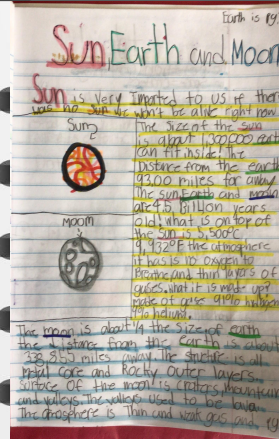 Earth is
Sun, Earth and Moon
Sun is very Imported to us if ther
was no sun we won't be alive right now.
Sun
The Size of the sun
is about 1,300,000 earth
can fit inside. The
Distance from the earth
93,00 miles far away
The sun, Earth and moon
are 4.5 Billion years
old. what is on top of
the sun is 5,500°c
9,932°F the atmosphere
it has is no oxygen to
Breathe and thin layers of
gases. what it is made up?
made of gase 91%
helium.
Moom
The moon is about 1/4 the size of earth
the distance from the Earth is about
338,855 miles away. The structure is all
metal core and Rocky outer layers.
Surface of the moon is craters, mountain
and valleys. The valleys used to be lava
The atmosphere is Thin and weak gas and